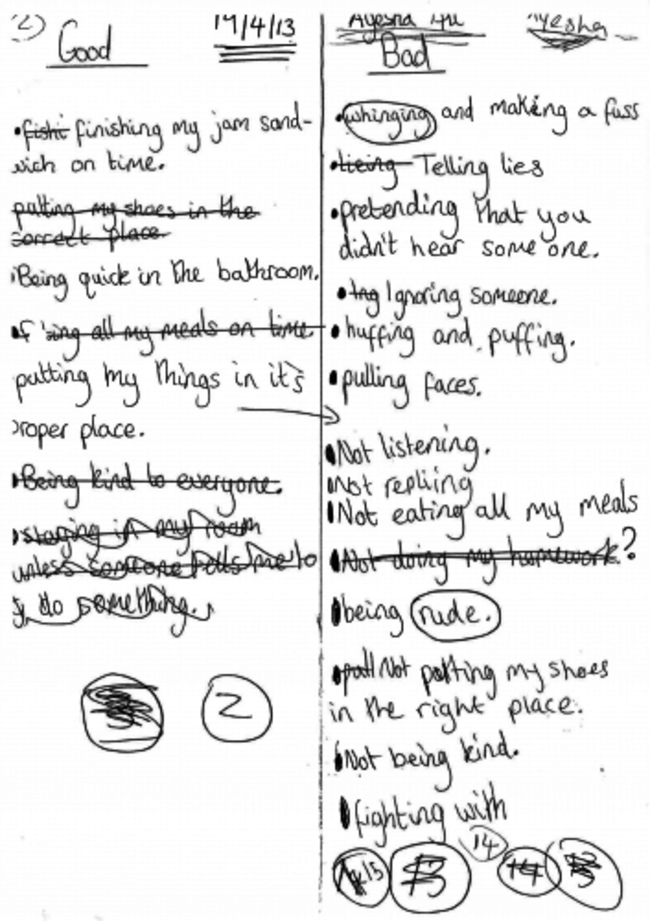 2)
Good
19/4/13
• fishi finishing my jam sand-
wich on time.
putting my shoes in the
correct place.
Being quick in the bathroom.
all my meals on time
putting my things in it's
roper place.
• Being kind to everyone.
• staying in my room
unless someone tells me to
do something.
2
Ayesha Ali
Ayesha
Bad
• whinging and making a fuss
• lieing Telling lies
• pretending that you
didn't hear some one.
• Ing Ignoring someone.
• huffing and puffing.
• pulling faces.
Not listening.
Not repliing
Not eating all my meals
Not doing my homework.?
being rude.
• pull Not putting my shoes
in the right place.
Not being kind.
fighting with
15
14
14